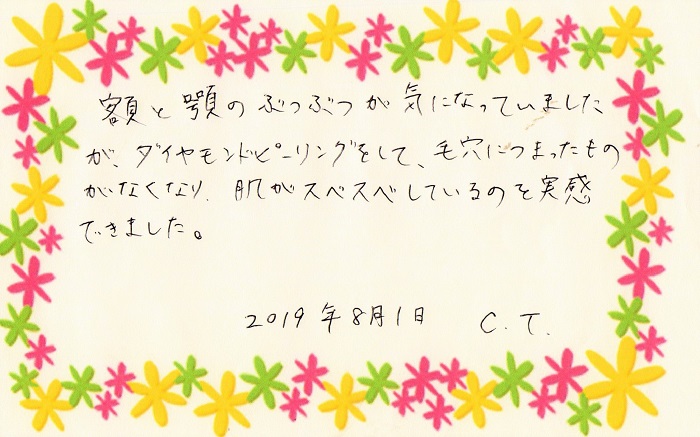 額と顎のぶつぶつが気になっていました
が、ダイヤモンドピーリングをして、毛穴につまったもの
がなくなり、肌がスベスベしているのを実感
できました。
2019年8月1日 C.T.